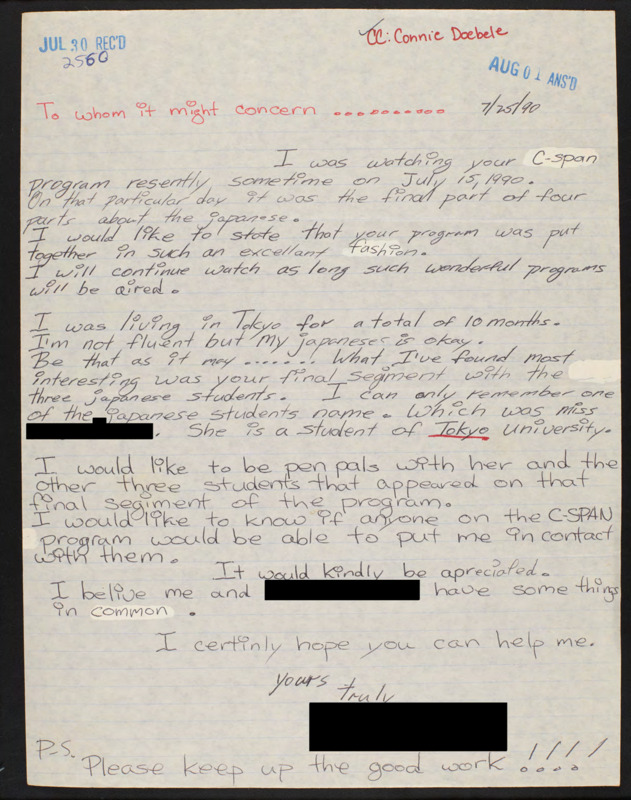 JUL 30 REC'D
2560
CC: Connie Doebele
AUG 01 ANS'D
To whom it might concern ...........
7/25/90
I was watching your C-span
program resently sometime on July 15, 1990.
On that particular day it was the final part of four
parts about the japanese.
I would like to state that your program was put
together in such an excellant fashion.
I will continue watch as long such wonderful programs
will be aired.
I was living in Tokyo for a total of 10 months.
I'm not fluent but my japaneses is okay.
Be that as it mey ....... What I've found most
interesting was your final segiment with the
three japanese students. I can only remember one
of the japanese students name. Which was miss
. She is a student of Tokyo university.
I would like to be pen pals with her and the
other three students that appeared on that
final segiment of the program.
I would like to know if anyone on the C-SPAN
program would be able to put me in contact
with them.
It would kindly be apreciated.
I belive me and have some things
in common .
I certinly hope you can help me.
yours truly
P.S.
Please keep up the good work !!!!